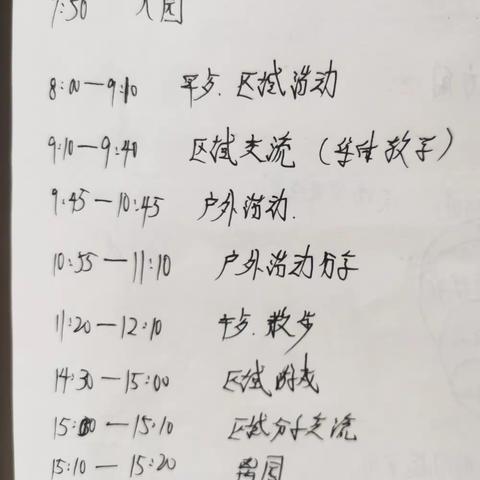 7:50 入园
8:00—9:10 早点.区域活动
9:10—9:40 区域交流(集体教学)
9:45—10:45 户外活动.
10:55—11:10 户外活动分享
11:20—12:10 午点.散步
14:30—15:00 区域游戏
15:00—15:10 区域分享交流
15:10—15:20 离园